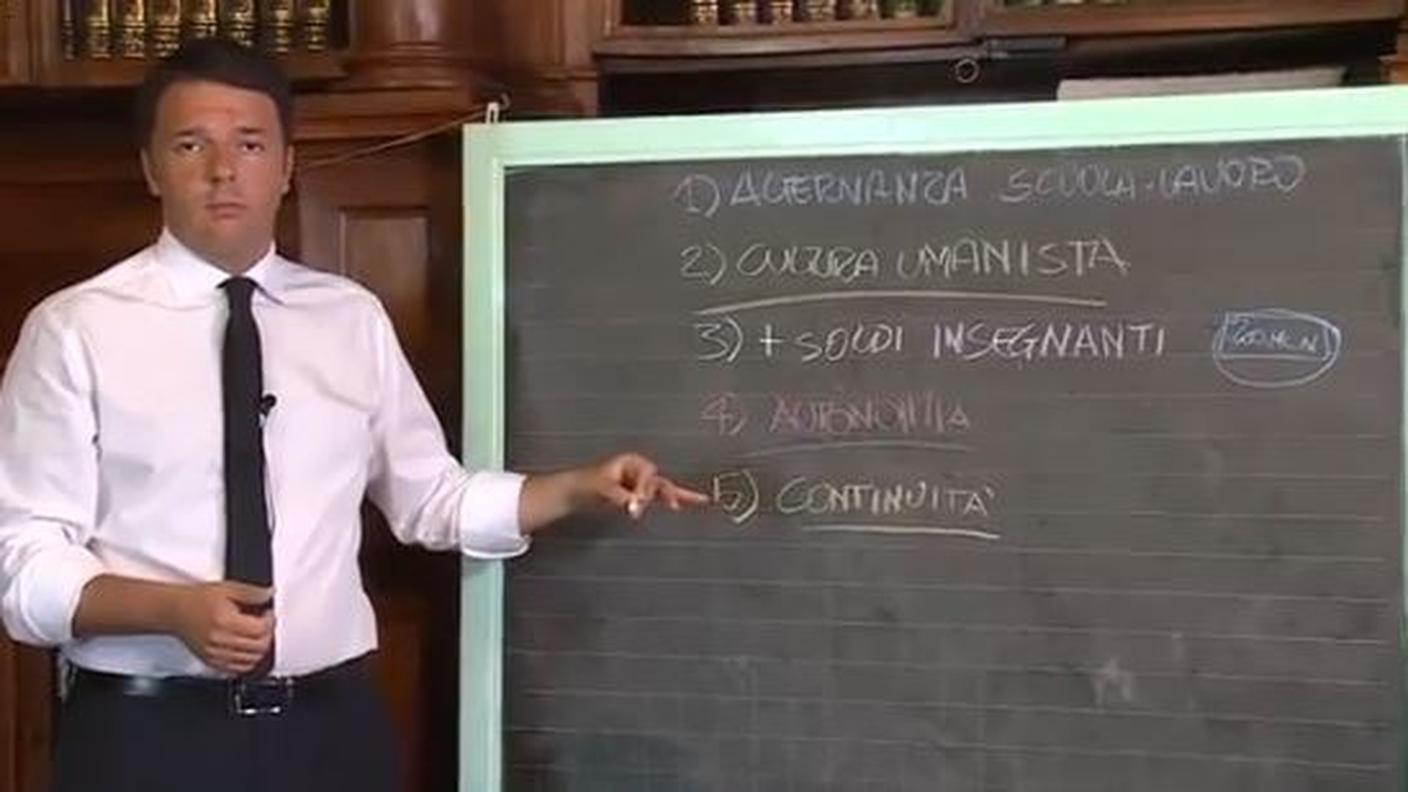 1) ALTERNANZA SCUOLA-LAVORO
2) CULTURA UMANISTA
3) + SOLDI INSEGNANTI
4) AUTONOMIA
5) CONTINUITA'